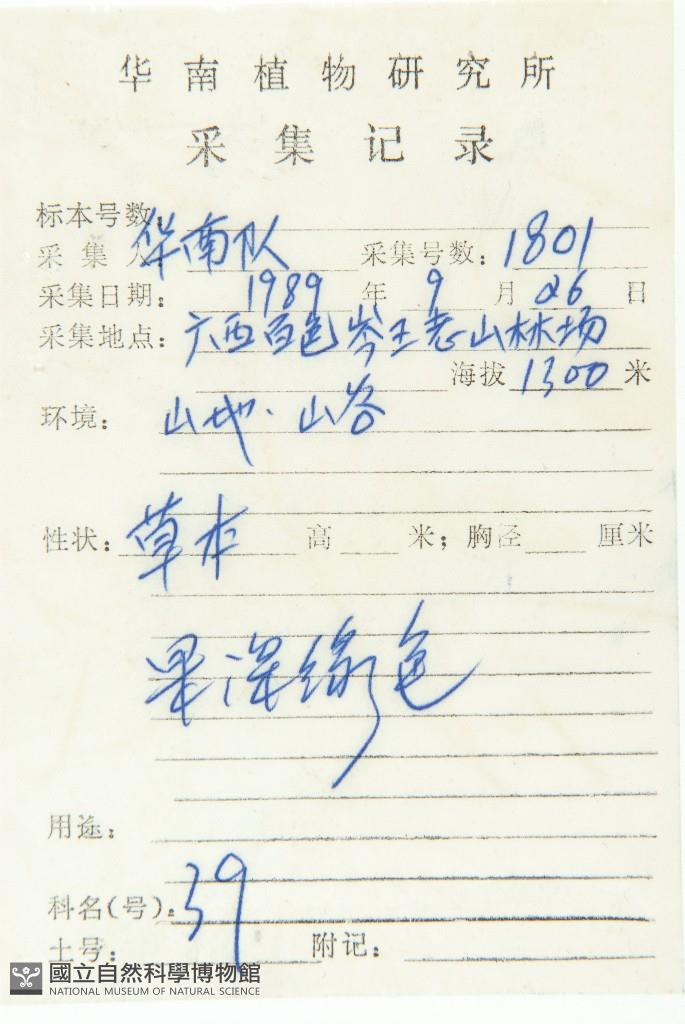 华南植物研究所
采集记录
标本号数:
采集人:华南队 采集号数:1801
采集日期:1989年9月26日
采集地点:广西百色岑王老山林场
海拔1300米
环境:山地.山谷
性状:草本 高 米;胸径 厘米
果深绿色
用途:
科名(号):39
土号: 附记:
國立自然科學博物館
NATIONAL MUSEUM OF NATURAL SCIENCE